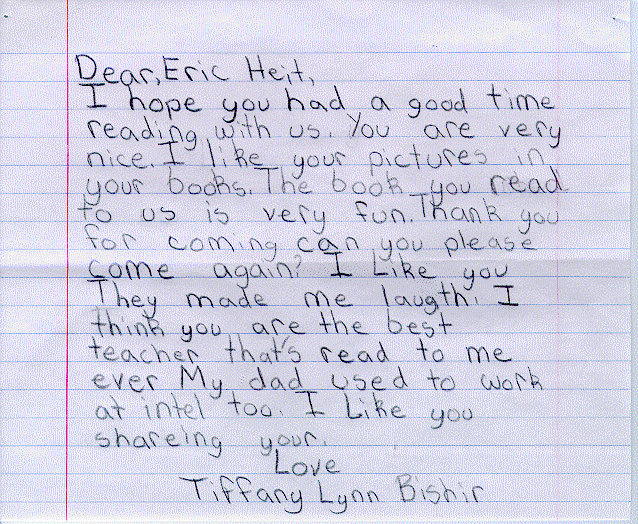 Dear, Eric Heit,
I hope you had a good time
reading with us. You are very
nice. I like your pictures in
your books. The book you read
to us is very fun. Thank you
for coming can you please
come again? I Like you
They made me laugth. I
think you are the best
teacher that's read to me
ever My dad used to work
at intel too. I Like you
shareing your.
Love
Tiffany Lynn Bishir